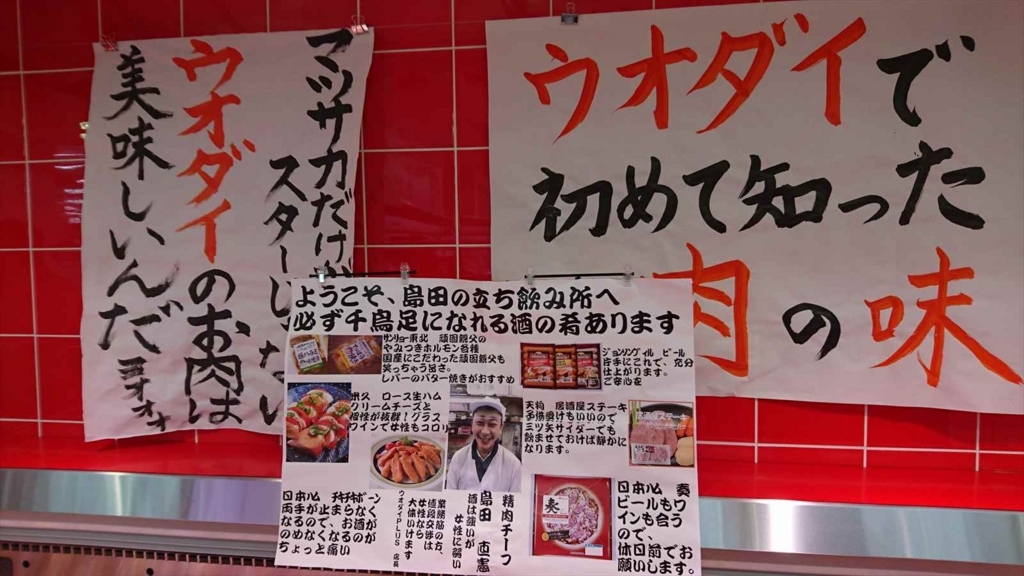 ウオダイで
初めて知った
肉の味
マッサカだけが
スターじゃない
ウオダイのお肉は
美味しいんだョオォォ
ようこそ、島田の立ち飲み所へ
必ず千鳥足になれる酒の肴あります
サンリョー東北 頑固親父の
やみつきホルモン各種
国産にこだわった頑固親父も
笑っちゃう旨さ。
レバーのバター焼きがおすすめ
ジョンソンヴィル ビール
片手にこれで、充分
仕上がります。
ご安心を
米久 ロース生ハム
クリームチーズと
相性が抜群!グラス
ワインで女性もコロリ
天狗 居酒屋ステーキ
子供受けもいいので
三ツ矢サイダーでも
飲ませておけば静かに
なります。
日本ハム チキチキボーン
両手が止まらなく
なるので、お酒が
のめなくなるのが
ちょっと痛い
精肉チーフ
島田 直憲
酒は強いが
女性に弱い
業務筋の方、
値段交渉は
女性なら
大体いけます
ウオダイPLUS 店長
日本ハム 奏
ビールもワ
インも合う
ので、
休日前でお
願いします。
奏